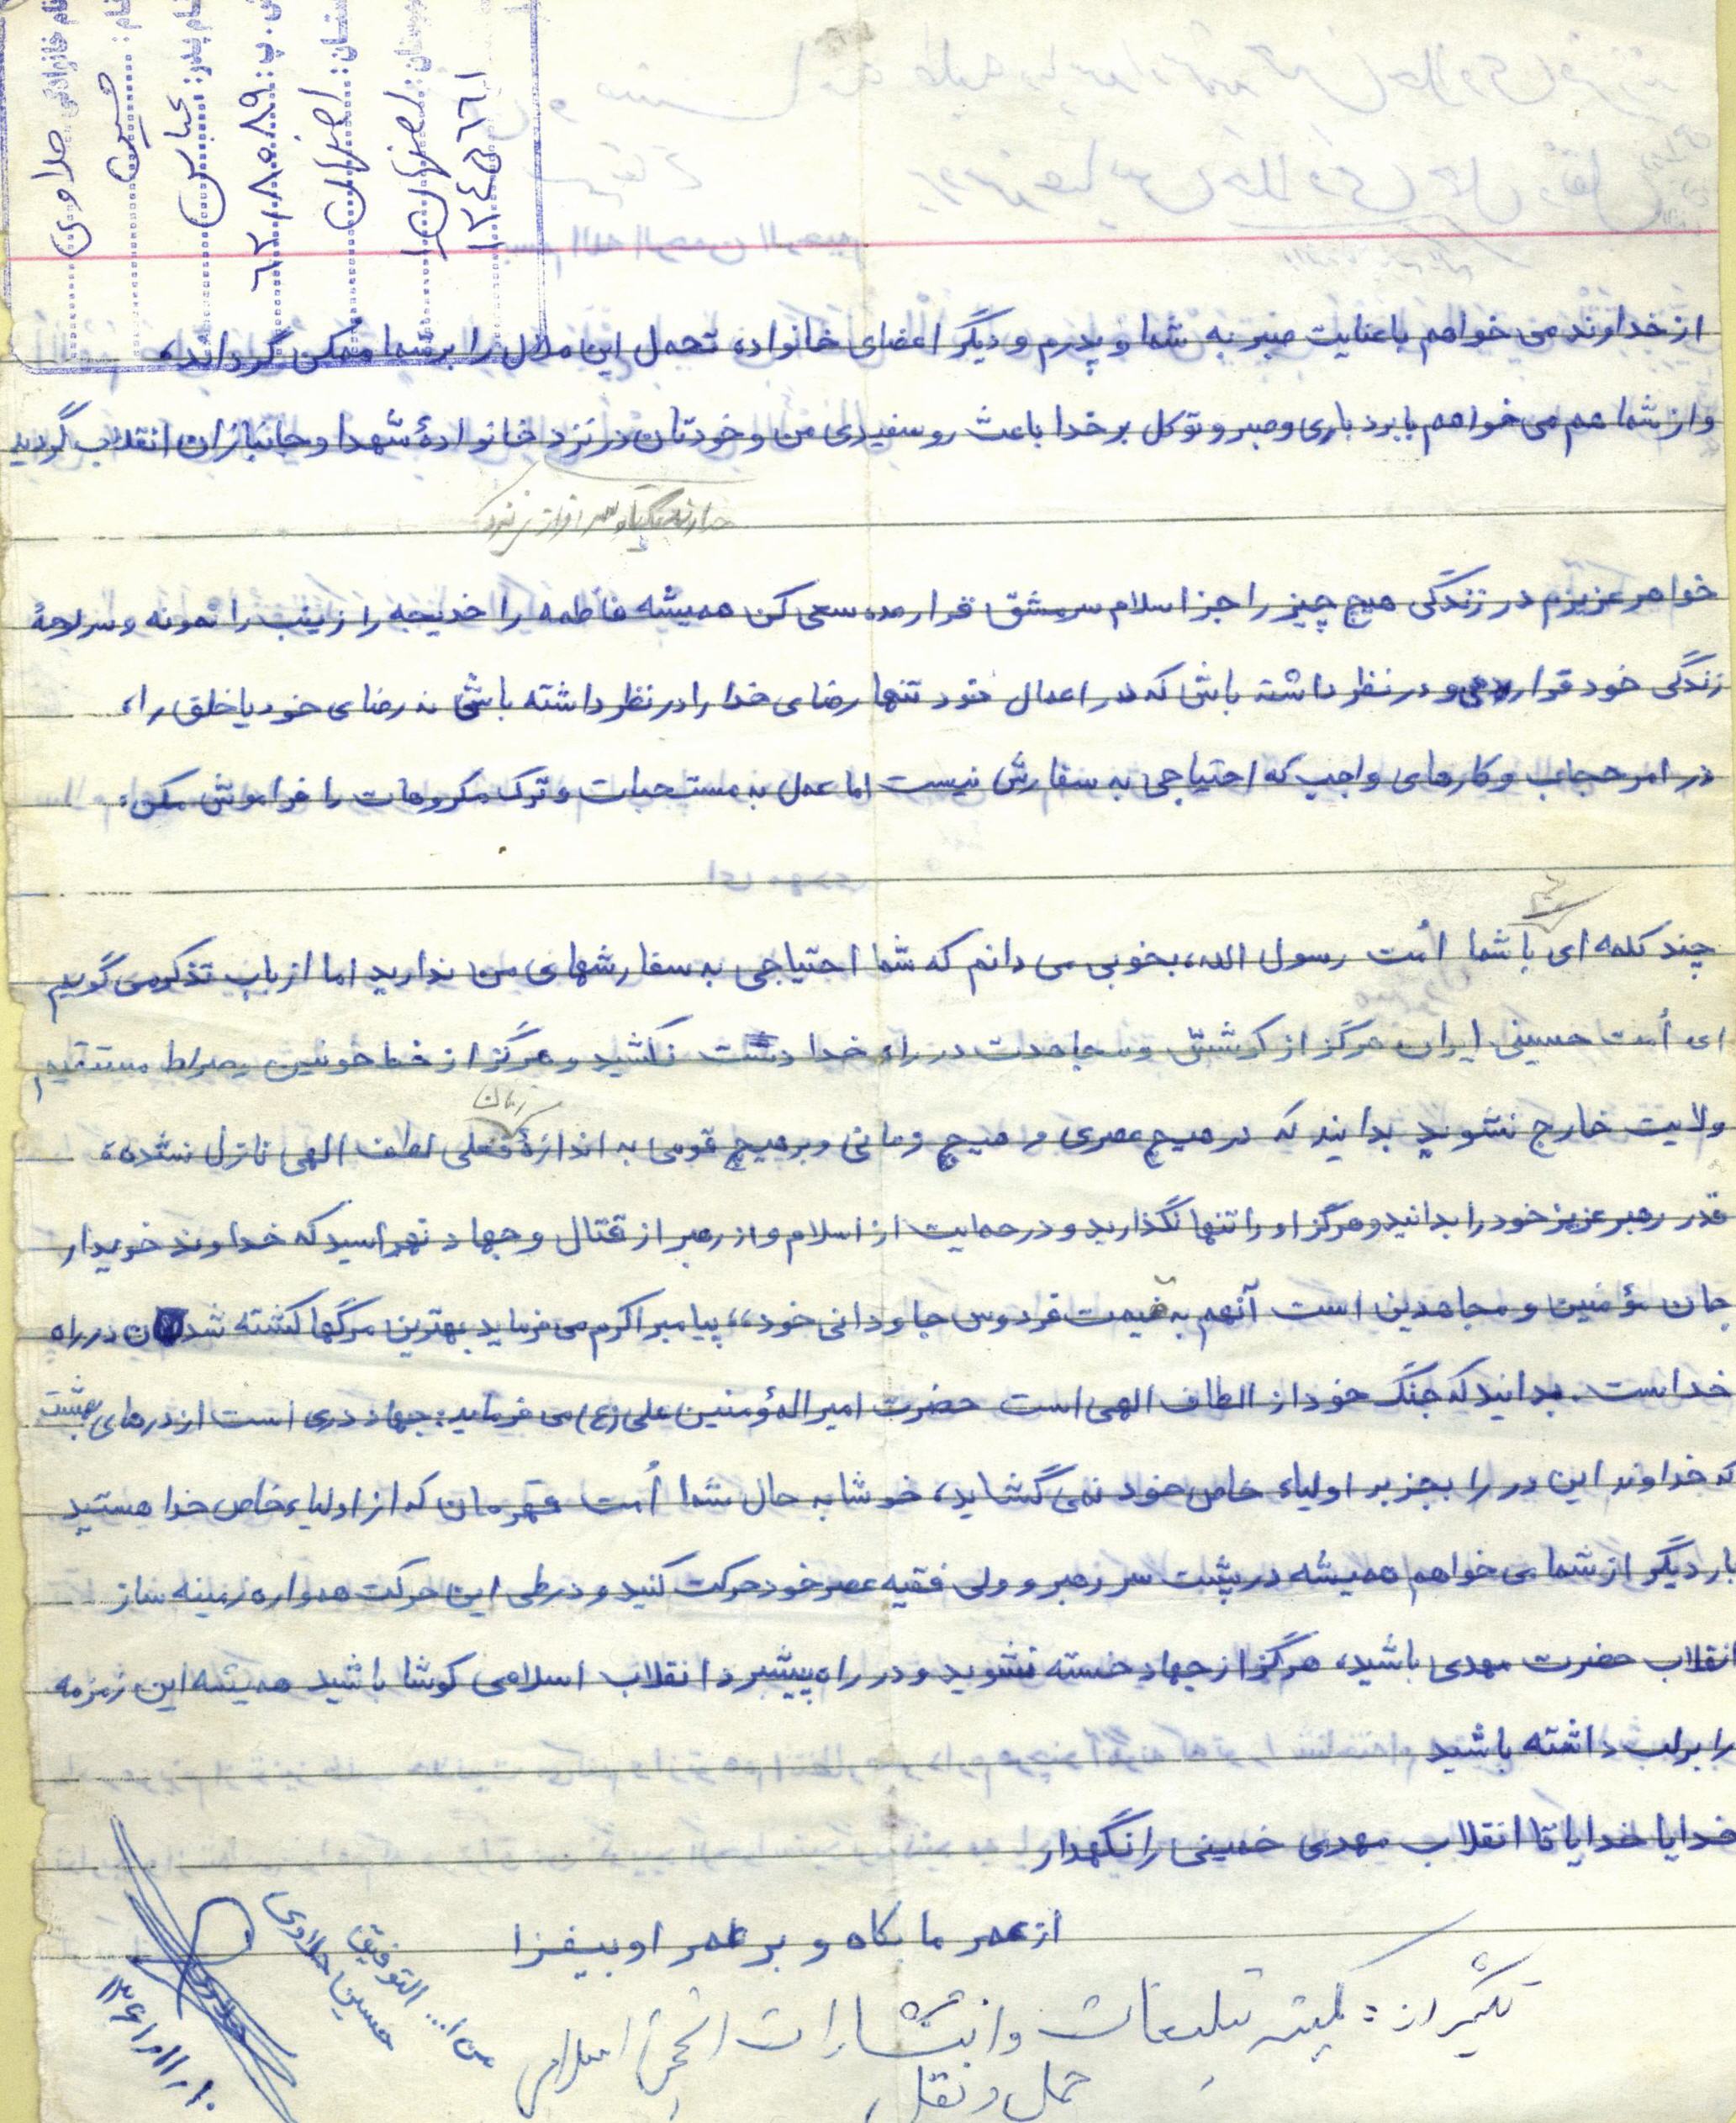 نام خانوادگی: حلاوی
نام: حسین
نام پدر: عباس
ش. پ: ۶۳/۸۰۸۹
استان: اصفهان
شهرستان: اصفهان
۱۳۴۵۵۶۶۱
از خداوند می خواهم با عنایت صبر به شما و پدرم و دیگر اعضای خانواده تحمل این ملال را بر شما ممکن گرداند،
و از شما هم می خواهم با بردباری و صبر و توکل بر خدا باعث روسفیدی من و خودتان در نزد خانوادهٔ شهدا و جانبازان انقلاب گردید
خواهر عزیزم در زندگی هیچ چیز را جز اسلام سرمشق قرار مده سعی کن همیشه فاطمه را خدیجه را زینب را نمونه و سرلوحهٔ
زندگی خود قرار دهی و در نظر داشته باش که در اعمال خود تنها رضای خدا را در نظر داشته باشی نه رضای خود یا خلق را،
در امر حجاب و کارهای واجب که احتیاجی به سفارش نیست اما عمل به مستحبات و ترک مکروهات را فراموش مکن.
چند کلمه ای با شما اُمت رسول الله، بخوبی می دانم که شما احتیاجی به سفارشهای من ندارید اما از باب تذکر می گویم
ای اُمت حسینی ایران هرگز از کوشش و مجاهدت در راه خدا دست نکشید و هرگز از خط خونین صراط مستقیم
ولایت خارج نشوید بدانید که در هیچ عصری و هیچ زمانی و بر هیچ قومی به اندازهٔ فعلی لطف الهی نازل نشده،
زمان
قدر رهبر عزیز خود را بدانید و هرگز او را تنها نگذارید و در حمایت از اسلام و از رهبر از قتال و جهاد نهراسید که خداوند خریدار
جان مؤمنین و مجاهدین است آنهم به قیمت فردوس جاودانی خود،، پیامبر اکرم می فرماید بهترین مرگها کشته شدن در راه
خداست. بدانید که جنگ خود از الطاف الهی است حضرت امیرالمؤمنین علی (ع) می فرماید: جهاد دری است از درهای بهشت
که خداوند این در را بجز بر اولیاء خاص خود نمی گشاید، خوشا به حال شما اُمت قهرمان که از اولیاء خاص خدا هستید
بار دیگر از شما می خواهم همیشه در پشت سر رهبر و ولی فقیه عصر خود حرکت کنید و در طی این حرکت همواره زمینه ساز
انقلاب حضرت مهدی باشید، هرگز از جهاد خسته نشوید و در راه پیشبرد انقلاب اسلامی کوشا باشید همیشه این زمزمه
را بر لب داشته باشید
خدایا خدایا تا انقلاب مهدی خمینی را نگهدار
از عمر ما بکاه و بر عمر او بیفزا
من ا... التوفیق
حسین حلاوی
حلاوی
تکثیر از: کمیته تبلیغات و انتشارات انجمن اسلامی
حمل و نقل